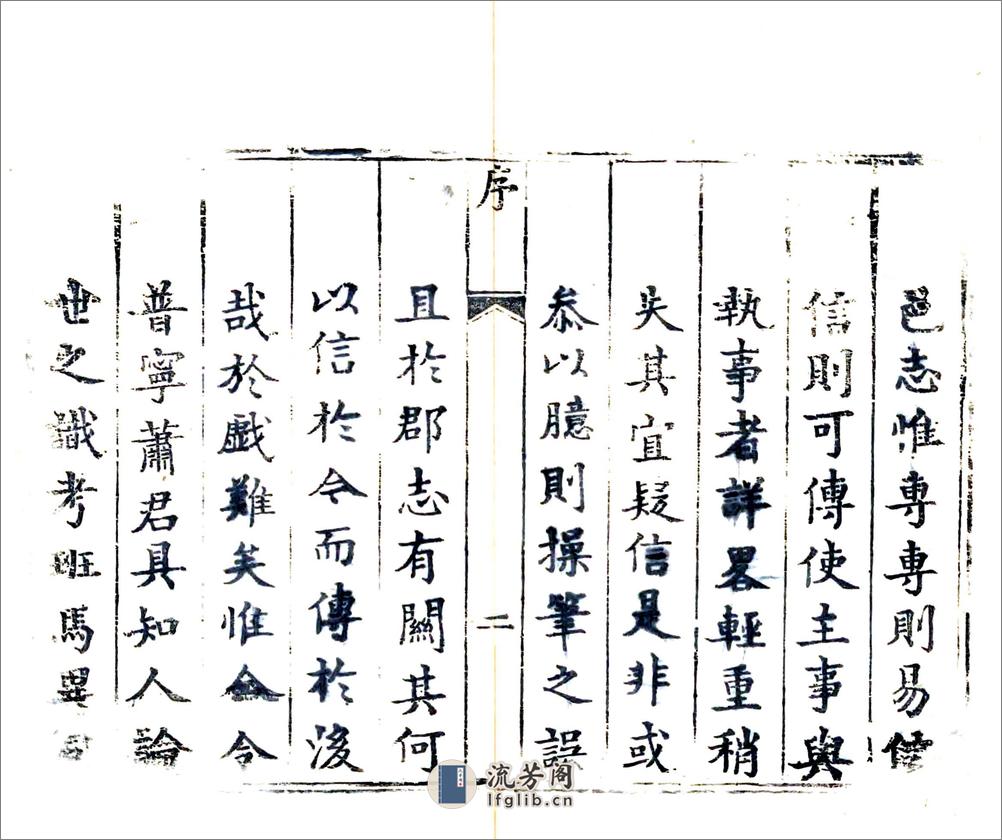 邑志惟専専則易信
信則可傳使主事與
執事者詳畧輕重稍
失其宜疑信是非或
叅以臆則操筆之誤
序
二
且於郡志有關其何
以信於今而傳於後
哉於戯難矣惟今令
普寧蕭君具知人論
世之識考班馬異
流芳阁
lfglib.cn